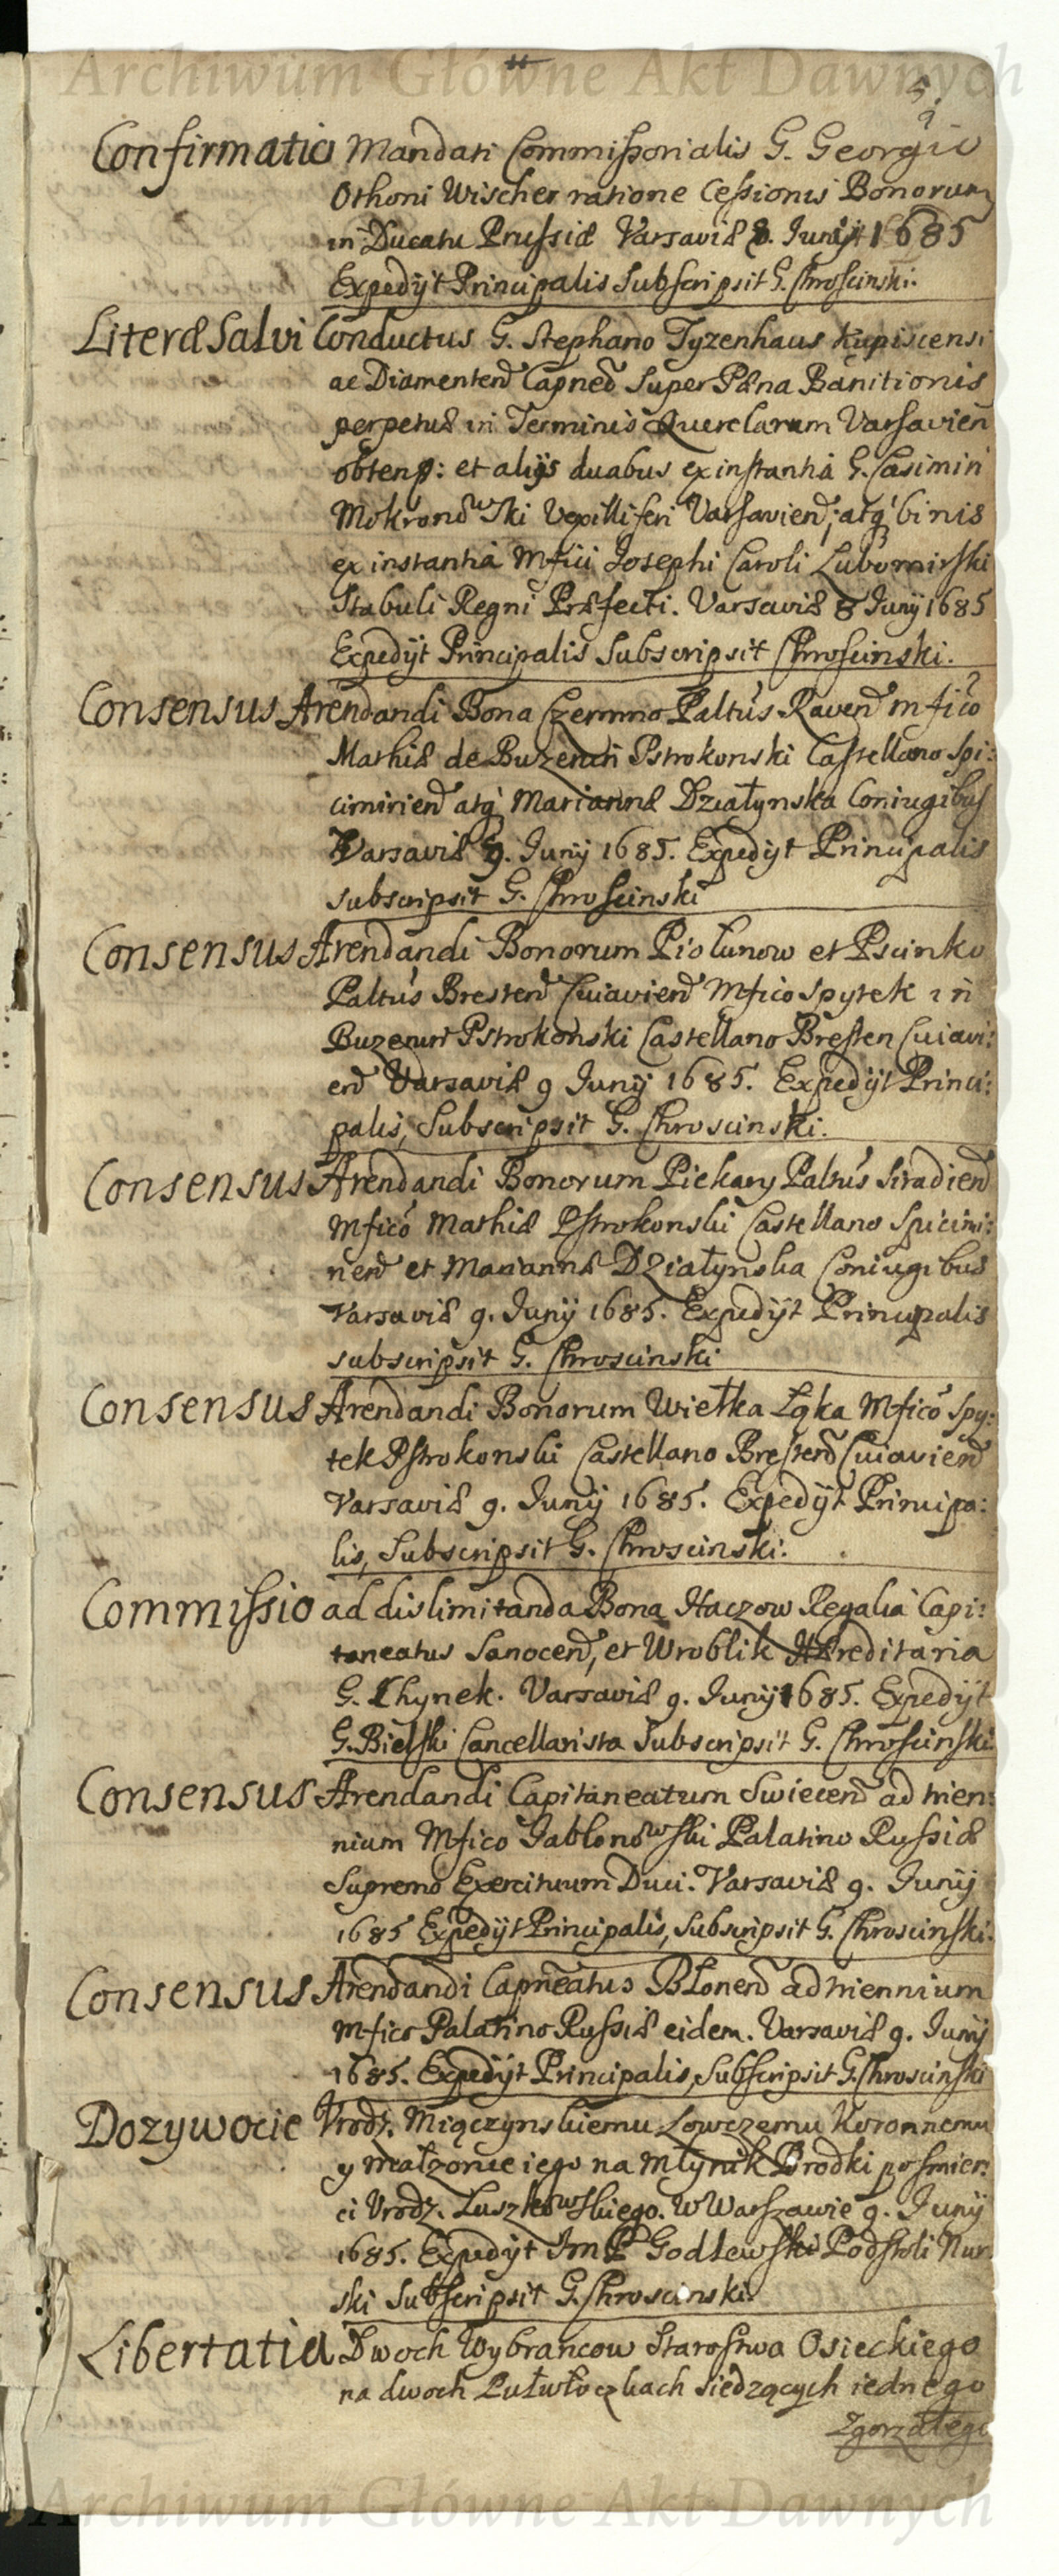 Archiwum Główne Akt Dawnych
Confirmatio Mandati Commissorialis G. Georgio
Othoni Wischer ratione Cessionis Bonorum
in Ducatu Prussiæ Varsaviæ 8. Junij 1685
Expedijt Principalis Subscripsit G. Chroscinski.
Literæ Salvi Conductus G. Stephano Tyzenhaus Kupiscensi
ac Diamenten Capneo Super Pæna Banitionis
perpetuæ in Terminis Querelarum Varsavien
obtent: et alijs duabus ex instantia G. Casimiri
Mokronowski Vexilliferi Varsavien; atq binis
ex instantia Mfici Josephi Caroli Lubomirski
Stabuli Regni Præfecti. Varsaviæ 8 Junij 1685
Expedijt Principalis Subscripsit Chroscinski.
Consensus Arendandi Bona Czermno Paltus Raven Mfico
Mathiæ de Buzenin Pstrokonski Castellano Spi:
cimirien atq Mariannæ Działynska Coniugibus
Varsaviæ 9. Junij 1685. Expedijt Principalis
subscripsit G. Chroscinski
Consensus Arendandi Bonorum Piolunow et Pscinko
Paltus Bresten Cuiavien Mfico Spytek in
Buzenin Pstrokonski Castellano Bresten Cuiavi:
en Varsaviæ 9 Junij 1685. Expedijt Princi:
palis, Subscripsit G. Chroscinski.
Consensus Arendandi Bonorum Piekary Paltus Siradien
Mfico Mathiæ Pstrokonski Castellano Spicimi:
rien et Mariannæ Działynska Coniugibus
Varsaviæ 9. Junij 1685. Expedijt Principalis
subscripsit G. Chroscinski
Consensus Arendandi Bonorum Wielka Łąka Mfico Spy:
tek Pstrokonski Castellano Bresten Cuiavien
Varsaviæ 9. Junij 1685. Expedijt Principa:
lis, Subscripsit G. Chroscinski.
Commissio ad dislimitanda Bona Haczow Regalia Capi:
taneatus Sanocen, et Wroblik Hæreditaria
G. Chynek. Varsaviæ 9. Junij 1685. Expedijt
G. Bielski Cancellarista Subscripsit G. Chroscinski
Consensus Arendandi Capitaneatum Swiecen ad trien:
nium Mfico Jablonowski Palatino Russiæ
Supremo Exercituum Duci. Varsaviæ 9. Junij
1685 Expedijt Principalis, Subscripsit G. Chroscinski.
Consensus Arendandi Capneatus Blonen ad triennium
Mfico Palatino Russiæ eidem. Varsaviæ 9. Junij
1685. Expedijt Principalis, Subscripsit G. Chroscinski
Dozywocie Vrodz. Miączynskiemu Lowczemu Koronnemu
y małzonce iego na Młynik Brodki po smier:
ci Vrodz. Luszkowskiego. W Warszawie 9. Junij
1685. Expedijt Im P Godlewski Podstoli Nur
ski Subscripsit G. Chroscinski
Libertatia Dwoch Wybrancow Starostwa Osieckiego
na dwoch Pułwłoczkach siedzących iednego
Zgorzałego
Archiwum Główne Akt Dawnych